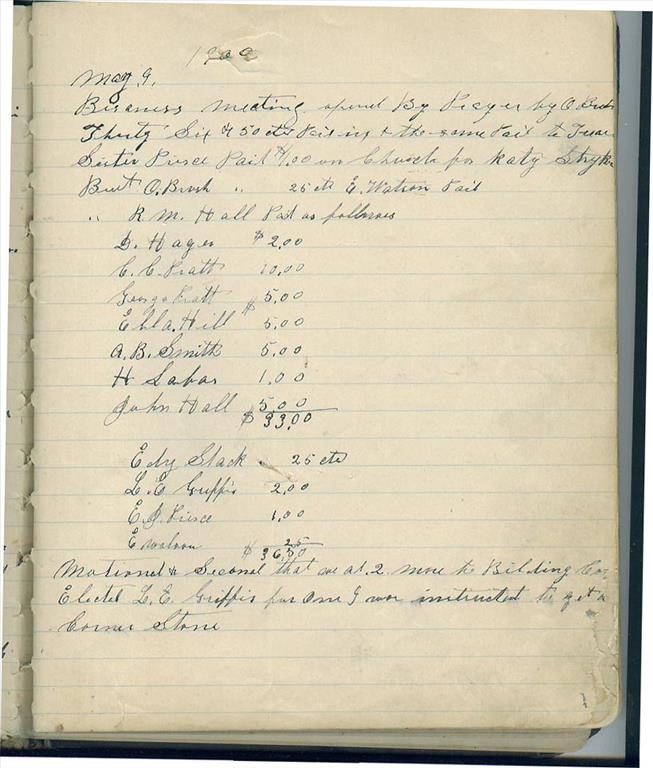 1909
May 9.
Bisness meeting opend By Prayer by O.
Thirty Six & 50 cts Paid in & the same Paid to
Sister Pierce Paid $1.00 on Church for Katy Stryk
Burt O. Brush " 25 cts E. Watson Paid
" R. M. Hall Paid as follows
D. Hager $2.00
C. C. Pratt 10.00
George Pratt 5.00
Ella Hill $5.00
A. B. Smith 5.00
H Labar 1.00
John Hall 5.00
$33.00
Edy Stack . 25 cts
L. E Griffis 2.00
E. J. Pierce 1.00
E watson 25
$36.50
Motioned & Second that we at. 2 more to Bilding Com
Elected L. E. Griffis for one I was instructed to get a
Corner Stone